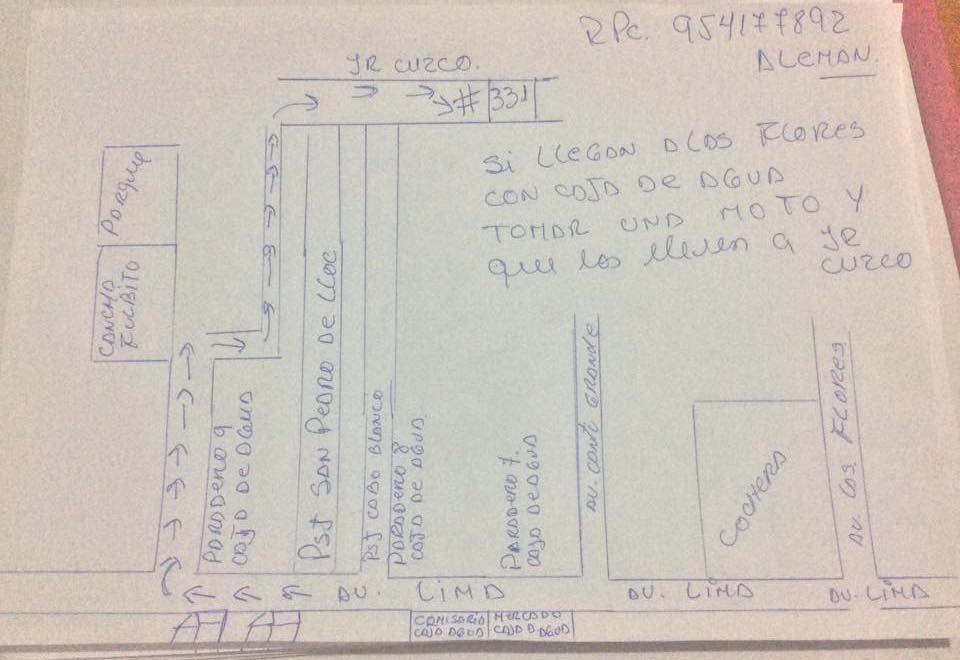 RPC. 954177892
ALEMAN.
JR CUZCO.
# 331
Si LLEGAN A LOS FLORES
CON CAJA DE AGUA
TOMAR UNA MOTO Y
que los lleven a JR
CUZCO
Parque
CANCHA
FULBITO
PARADERO 9
CAJA DE AGUA
PSJ SAN PEDRO DE LLOC
PSJ CABO BLANCO
PARADERO 8
CAJA DE AGUA
PARADERO 7.
CAJA DE AGUA
AV. CANTO GRANDE
COCHERA
AV. LOS FLORES
AV. LIMA
AV. LIMA
AV. LIMA
COMISARIA
CAJA AGUA
MERCADO
CAJA D AGUA